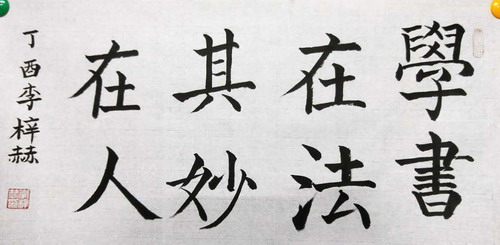 學書
在法
其妙
在人
丁酉李梓赫